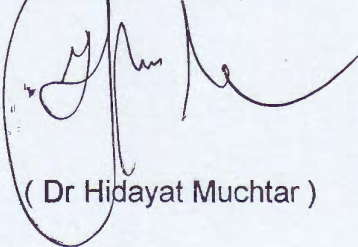 ( Dr Hidayat Muchtar )